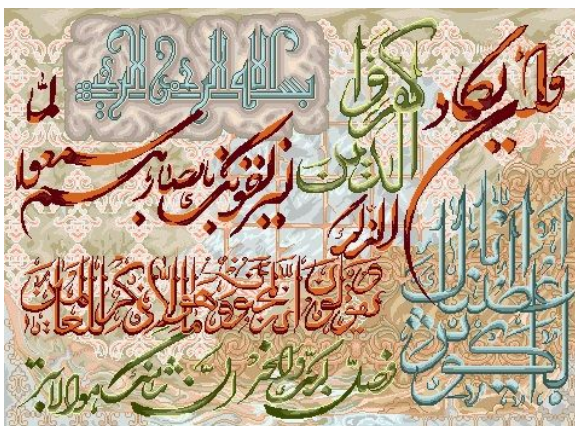 بسم الله الرحمن الرحيم
وإن يكاد
الذين كفروا
ليزلقونك بأبصارهم
لما سمعوا
الذكر
ويقولون إنه لمجنون وما هو إلا ذكر للعالمين
إنا أعطيناك الكوثر
فصل لربك وانحر إن شانئك هو الأبتر